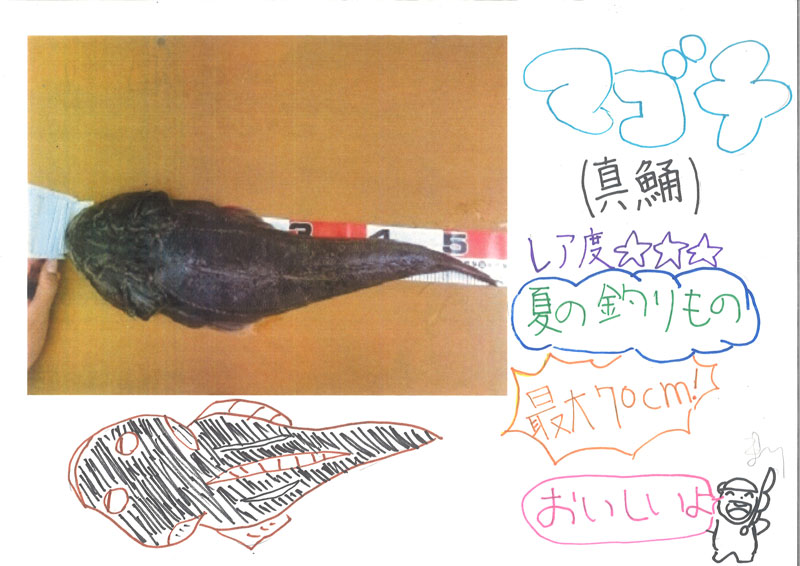 マゴチ
(真鯒)
レア度☆☆☆
夏の釣りもの
最大70cm!
おいしいよ
3 4 5